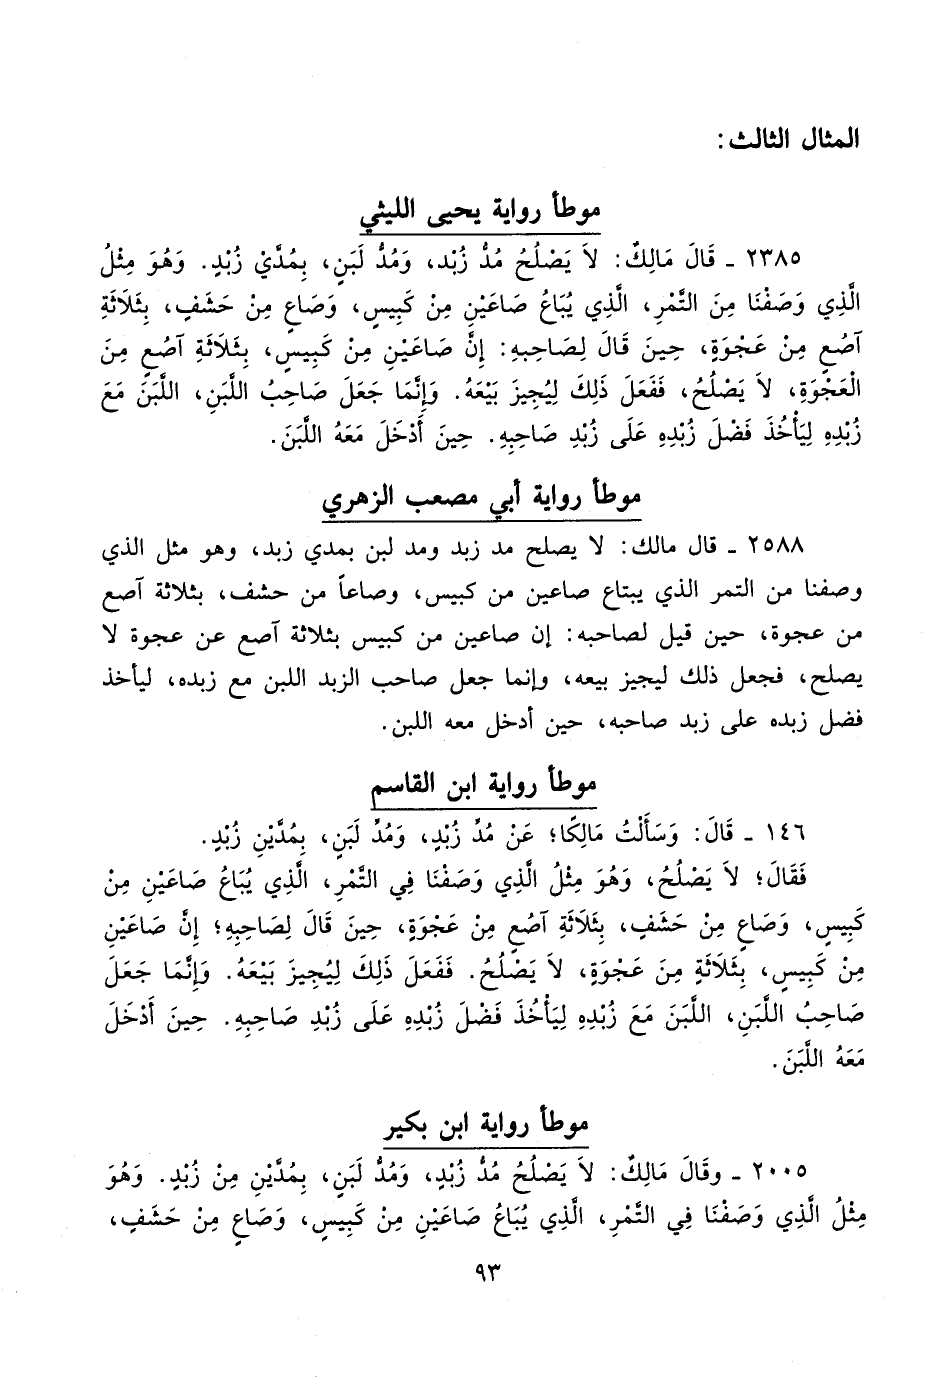 المثال الثالث:
موطأ رواية يحيى الليثي
٢٣٨٥ ـ قَالَ مَالِكٌ: لاَ يَصْلُحُ مُدُّ زُبْد، وَمُدُّ لَبَنٍ، بِمُدَّيْ زُبْدٍ. وَهُوَ مِثْلُ
الَّذِي وَصَفْنَا مِنَ التَّمْرِ، الَّذِي يُبَاعُ صَاعَيْنِ مِنْ كَبِيسٍ، وَصَاعٍ مِنْ حَشَفٍ، بِثَلَاثَةِ
آصُعٍ مِنْ عَجْوَةٍ، حِينَ قَالَ لِصَاحِبِهِ: إِنَّ صَاعَيْنِ مِنْ كَبِيسٍ، بِثَلَاثَةِ آصُعٍ مِنَ
الْعَجْوَةِ، لاَ يَصْلُحُ، فَفَعَلَ ذَلِكَ لِيُجِيزَ بَيْعَهُ. وَإِنَّمَا جَعَلَ صَاحِبُ اللَّبَنِ، اللَّبَنَ مَعَ
زُبْدِهِ لِيَأْخُذَ فَضْلَ زُبْدِهِ عَلَى زُبْدِ صَاحِبِهِ. حِينَ أَدْخَلَ مَعَهُ اللَّبَنَ.
موطأ رواية أبي مصعب الزهري
٢٥٨٨ ـ قال مالك: لا يصلح مد زبد ومد لبن بمدي زبد، وهو مثل الذي
وصفنا من التمر الذي يبتاع صاعين من كبيس، وصاعاً من حشف، بثلاثة آصع
من عجوة، حين قيل لصاحبه: إن صاعين من كبيس بثلاثة آصع عن عجوة لا
يصلح، فجعل ذلك ليجيز بيعه، وإنما جعل صاحب الزبد اللبن مع زبده، ليأخذ
فضل زبده على زبد صاحبه، حين أدخل معه اللبن.
موطأ رواية ابن القاسم
١٤٦ ـ قَالَ: وَسَأَلْتُ مَالِكًا؛ عَنْ مُدِّ زُبْدٍ، وَمُدِّ لَبَنٍ، بِمُدَّيْنِ زُبْدٍ.
فَقَالَ؛ لاَ يَصْلُحُ، وَهُوَ مِثْلُ الَّذِي وَصَفْنَا فِي التَّمْرِ، الَّذِي يُبَاعُ صَاعَيْنِ مِنْ
كَبِيسٍ، وَصَاعٍ مِنْ حَشَفٍ، بِثَلَاثَةِ آصُعٍ مِنْ عَجْوَةٍ، حِينَ قَالَ لِصَاحِبِهِ؛ إِنَّ صَاعَيْنِ
مِنْ كَبِيسٍ، بِثَلَاثَةٍ مِنَ عَجْوَةٍ، لاَ يَصْلُحُ. فَفَعَلَ ذَلِكَ لِيُجِيزَ بَيْعَهُ. وَإِنَّمَا جَعَلَ
صَاحِبُ اللَّبَنِ، اللَّبَنَ مَعَ زُبْدِهِ لِيَأْخُذَ فَضْلَ زُبْدِهِ عَلَى زُبْدِ صَاحِبِهِ. حِينَ أَدْخَلَ
مَعَهُ اللَّبَنَ.
موطأ رواية ابن بكير
٢٠٠٥ ـ وقَالَ مَالِكٌ: لاَ يَصْلُحُ مُدُّ زُبْدٍ، وَمُدُّ لَبَنٍ، بِمُدَّيْنِ مِنْ زُبْدٍ. وَهُوَ
مِثْلُ الَّذِي وَصَفْنَا فِي التَّمْرِ، الَّذِي يُبَاعُ صَاعَيْنِ مِنْ كَبِيسٍ، وَصَاعٍ مِنْ حَشَفٍ،
٩٣